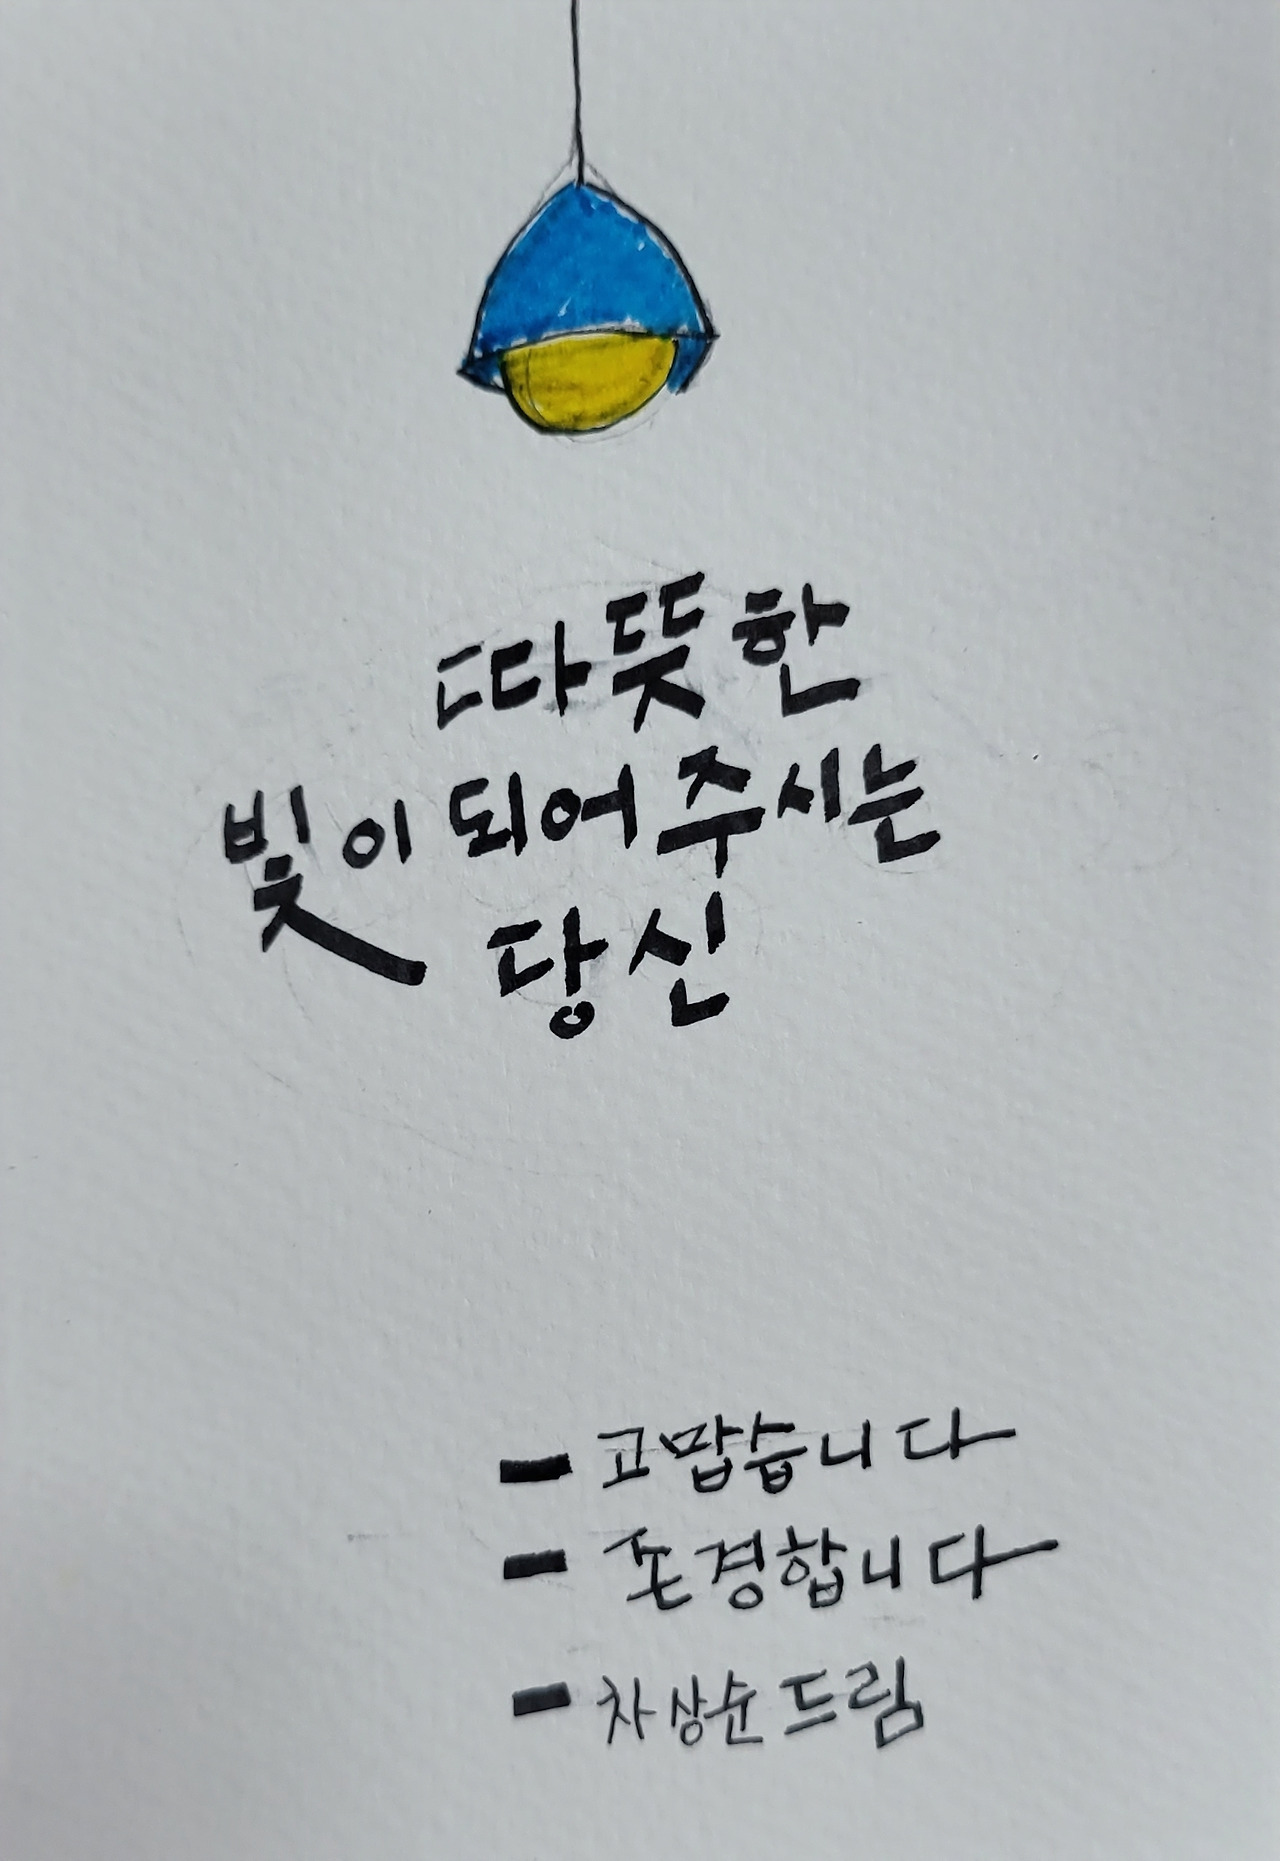 따뜻한
빛이 되어주시는
당신
- 고맙습니다
- 존경합니다
- 차상순 드림